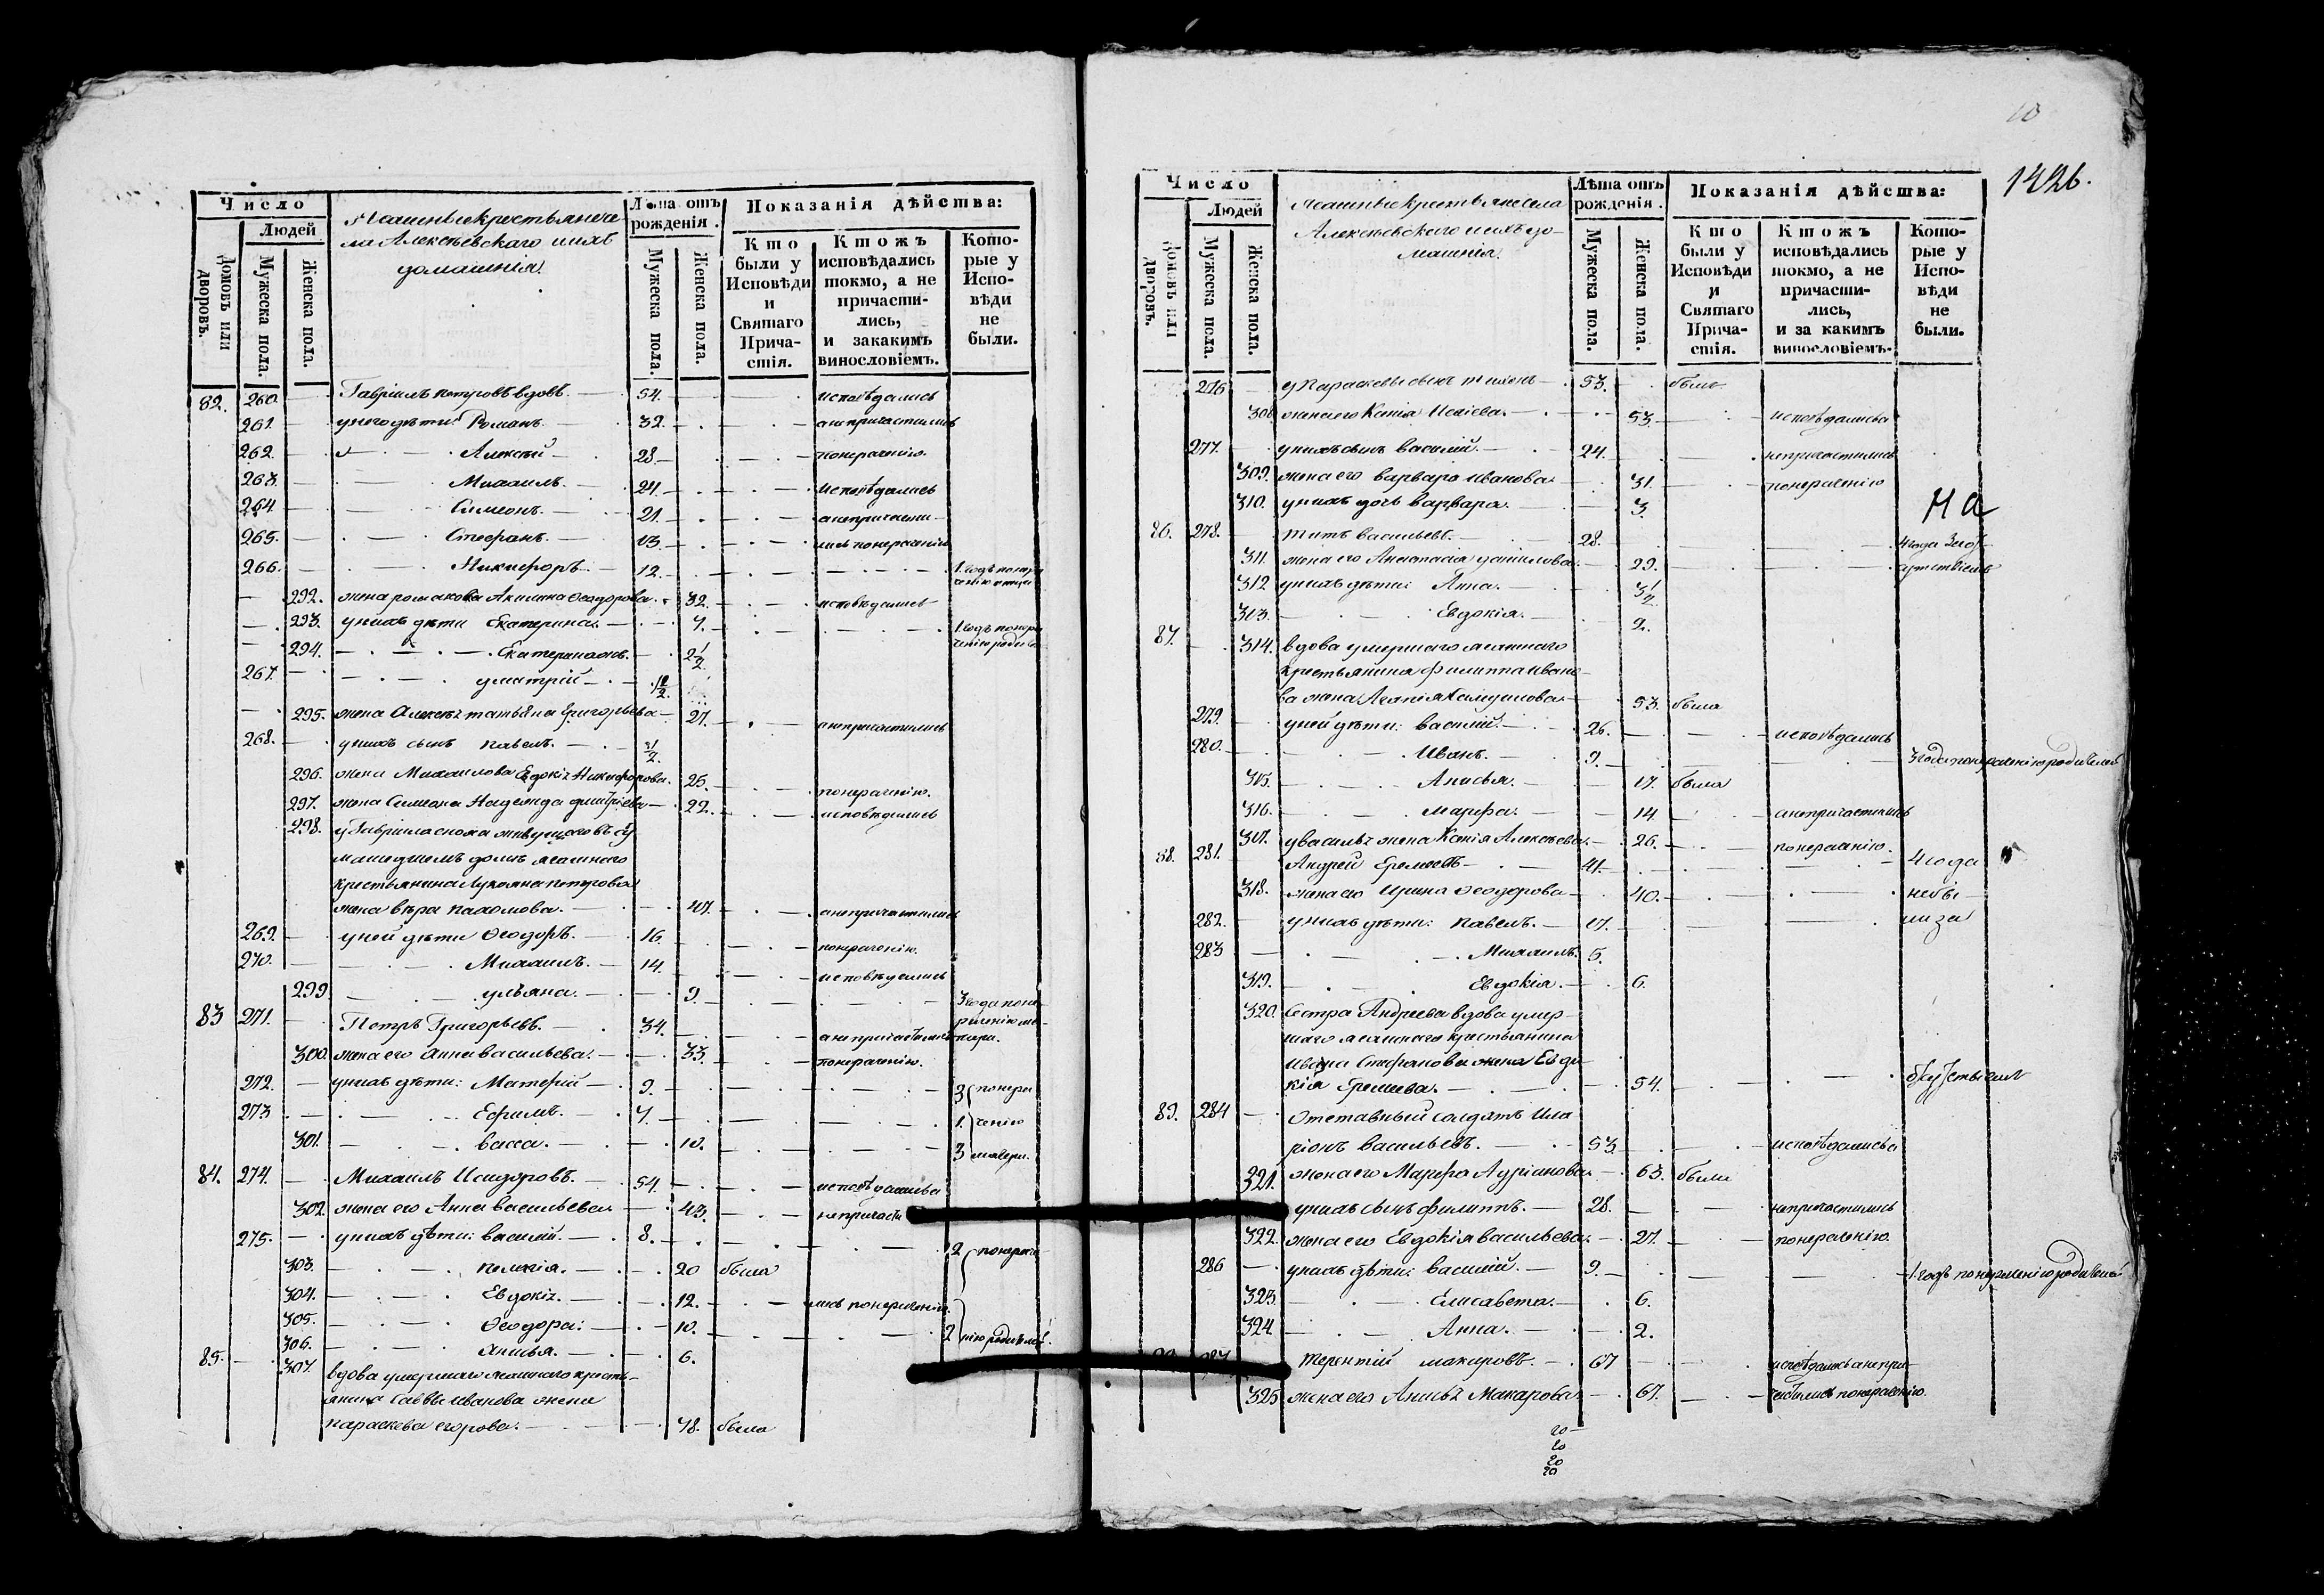 Число
Людей
Домовъ или дворовъ.
Мужеска пола.
Женска пола.
Ясашные крестьяне се
ла Алексѣевскаго и ихъ
домашнія.
Лѣта отъ рожденія.
Мужеска пола.
Женска пола.
Показанія дѣйства:
Кто были у Исповѣди и Святаго Причастія.
Ктожъ исповѣдались токмо, а не причастились, и закакимъ винословіемъ.
Которые у Исповѣди не были.
82. 260. Гавріилъ петровъ вдовъ. 54. исповѣдались
261. у него дѣти: Романъ. 32. анепричастились
262. Алексѣй 28. понерачению.
263. Михаилъ. 24. исповѣдались
264 Симеонъ. 21. анепричасти
265. Стефанъ. 13. лись понерачению
266. Никифоръ. 12. 1. годъ понера
чению отца
292. жена романова Акилина Ѳеодорова. 32. исповѣдались
293. у нихъ дѣти Екатерина. 7. 1. годъ понера
чению родите
294. Екатерина ож. 2 1/2
267. дмитрій 1/2.
295. жена Алексѣя татьяна Григорьева 27. анепричастились
268. у нихъ сынъ павелъ. 1/2.
296. жена Михаилова Евдокія Никифорова. 25. понерачению.
297. жена Симеона Надежда дмитріева 22. исповѣдались
298. у Гавріила сноха живущаго въ су
машедшемъ домѣ ясашнаго
крестьянина Лукояна петрова
жена вѣра пахомова. 47. анепричастились
269. у ней дѣти Ѳеодоръ. 16. понерачению.
270. Михаилъ. 14. исповѣдались
299. ульяна. 9. 3 года поне
83 271. Петръ Григорьевъ. 34. анепричастились
рачению ма
тери.
300. жена его Анна васильева. 33. понерачению.
272. у нихъ дѣти: Матфей 9. 3 понера
273 Ефимъ. 7. 1. чению
301. васса. 10. 3 матери.
84. 274. Михаилъ Исидоровъ. 54. исповѣдались а
302. жена его Анна васильева 43. непричасти
275. у нихъ дѣти: василій. 8. 2 понерач
303. пелагія. 20 была
304. Евдокія. 12. лись понерачению.
305. Ѳеодора: 10. 2 нию родителей.
306. Анисья. 6.
85. 307. вдова умершаго ясашнаго кресть
янина саввы иванова жена
параскева егорова. 48. была
10
1426.
Число
Людей
Домовъ или дворовъ.
Мужеска пола.
Женска пола.
Ясашные крестьяне села
Алексѣевскаго и ихъ до
машнія.
Лѣта отъ рожденія.
Мужеска пола.
Женска пола.
Показанія дѣйства:
Кто были у Исповѣди и Святаго Причастія.
Ктожъ исповѣдались токмо, а не причастились, и за какимъ винословіемъ.
Которые у Исповѣди не были.
276 у Параскевы сынъ тихонъ 53. былъ
308 жена его Ксенія Исаіева. 53. исповѣдались а
277. у нихъ сынъ василій. 24. непричастились
309. жена его варвара иванова 31. понерачению
310. у нихъ дочь варвара. 3.
На
86. 278. титъ васильевъ. 28. 4 года за от
311. жена его Анастасія данилова 29. сутствіемъ
312 у нихъ дѣти: Анна. 3 1/2
313. Евдокія. 2.
87. 314. вдова умершаго ясашнаго
крестьянина филиппа ивано
ва жена Агапія Самуилова 53. была
279. у ней дѣти: василій. 26. исповѣдались
280. Иванъ. 9. 3 года понерачению родителей
315. Анисья. 17. была
316. марфа. 14 анепричастились
317. у василья жена Ксенія Алексѣева 26. понерачению.
88. 281. Андрей Еремеевъ 41. 4 года
318. жена его Ирина Ѳеодорова 40. небы
282. у нихъ дѣти: павелъ. 17. ли за
283 Михаилъ. 5.
319. Евдокія. 6.
320. Сестра Андреева вдова умер
шаго ясашнаго крестьянина
Ивана Стефанова жена Евдо
кія Еремеева. 54. отсутствіемъ
89. 284 Отставный солдатъ Ила
ріонъ васильевъ. 53. исповѣдались а
321. жена его Марфа Адріанова 63. были
у нихъ сынъ филиппъ. 28. непричастились
322. жена его Евдокія васильева. 27. понерачению.
286 у нихъ дѣти: василій. 9. 1. годъ понерачению родителей
323. Елисавета. 6.
324. Анна. 2.
287 терентій макаровъ. 67 исповѣдались анепри
325 жена его Анисья Макарова 67. частились понерачению.
20
20
20
20